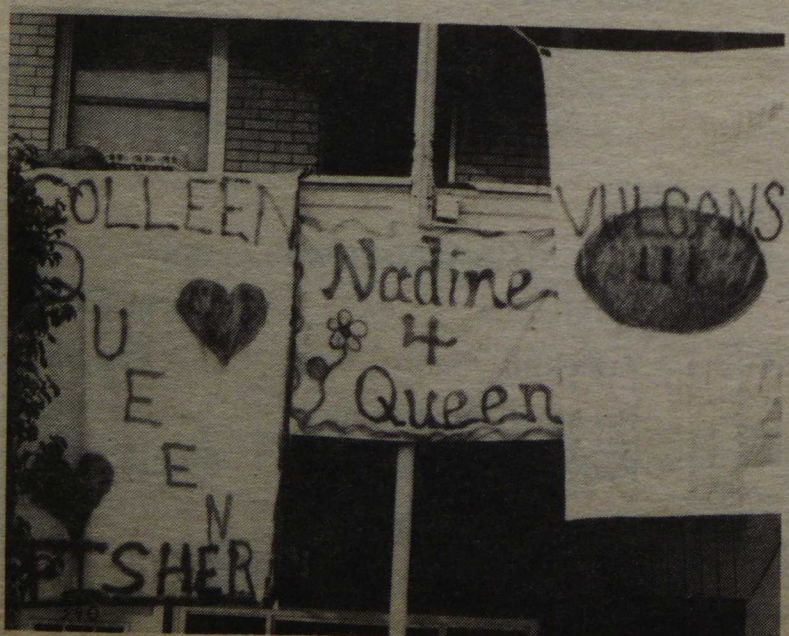 COLLEEN
QUEEN
Nadine
4
Queen
VULCANS